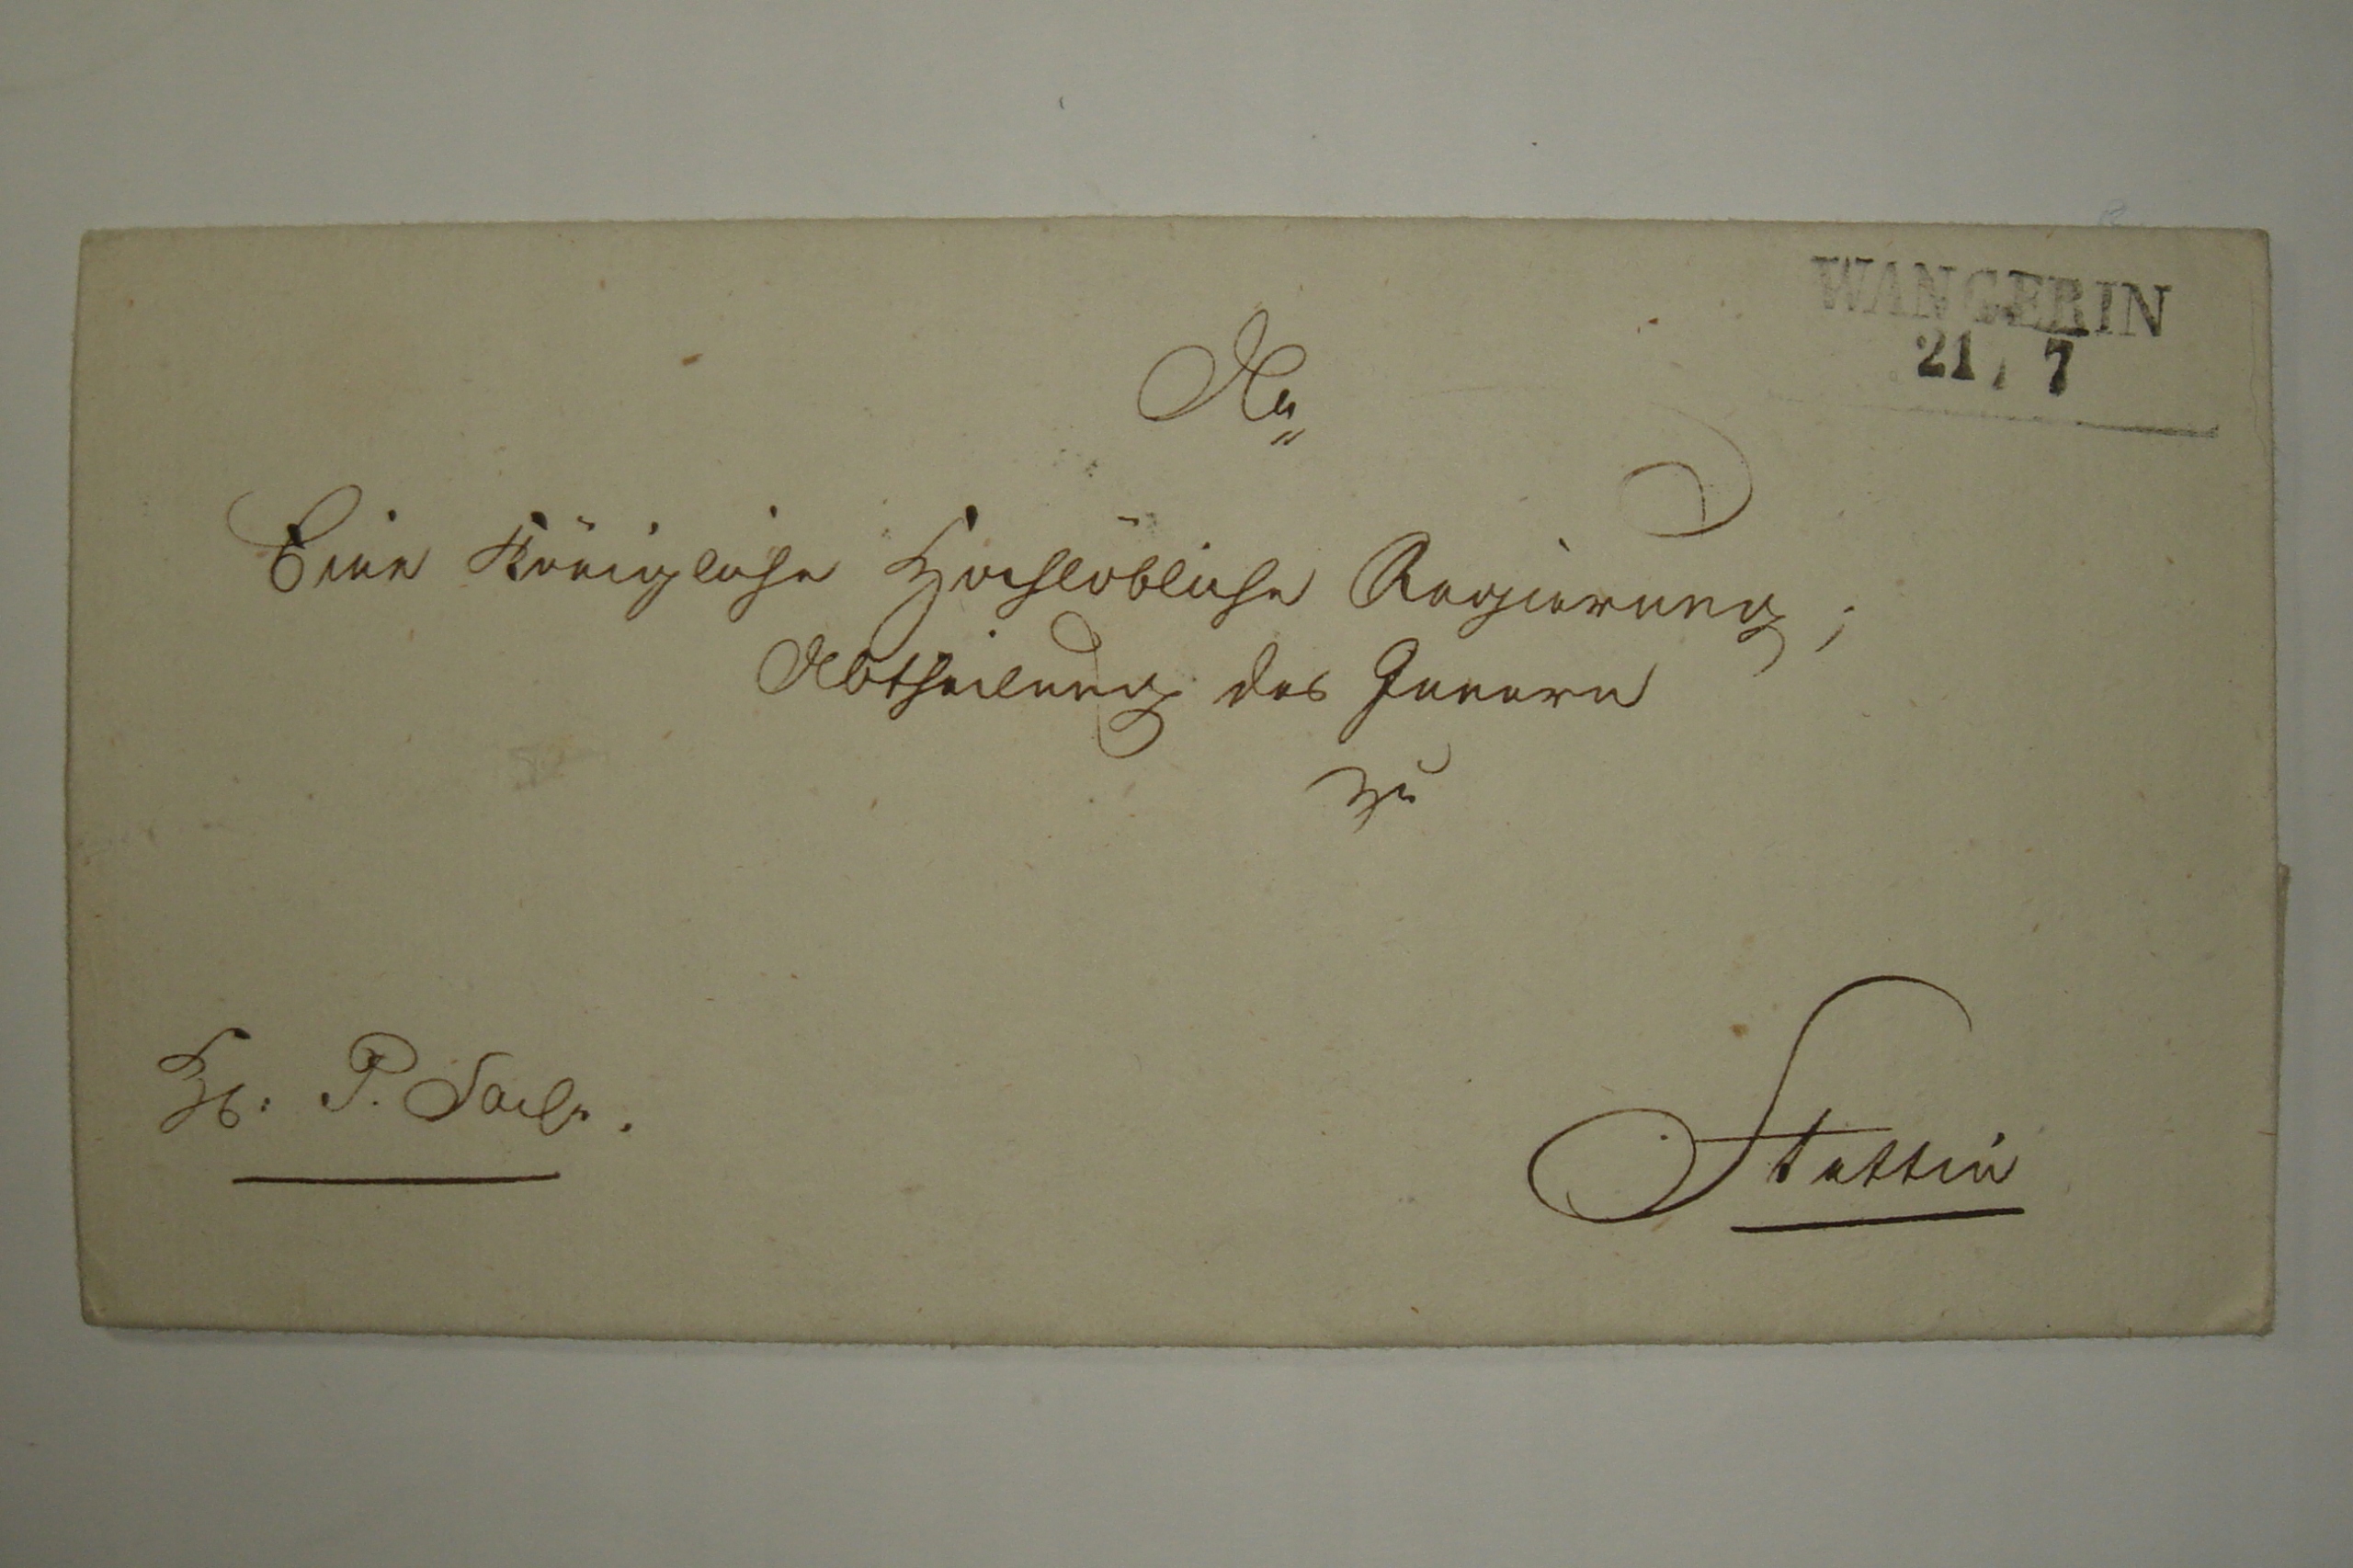 WANGERIN
21 / 7
An
Eine Königliche Hochlöbliche Regierung,
Abtheilung des Innern
zu
P. Sache.
Stettin